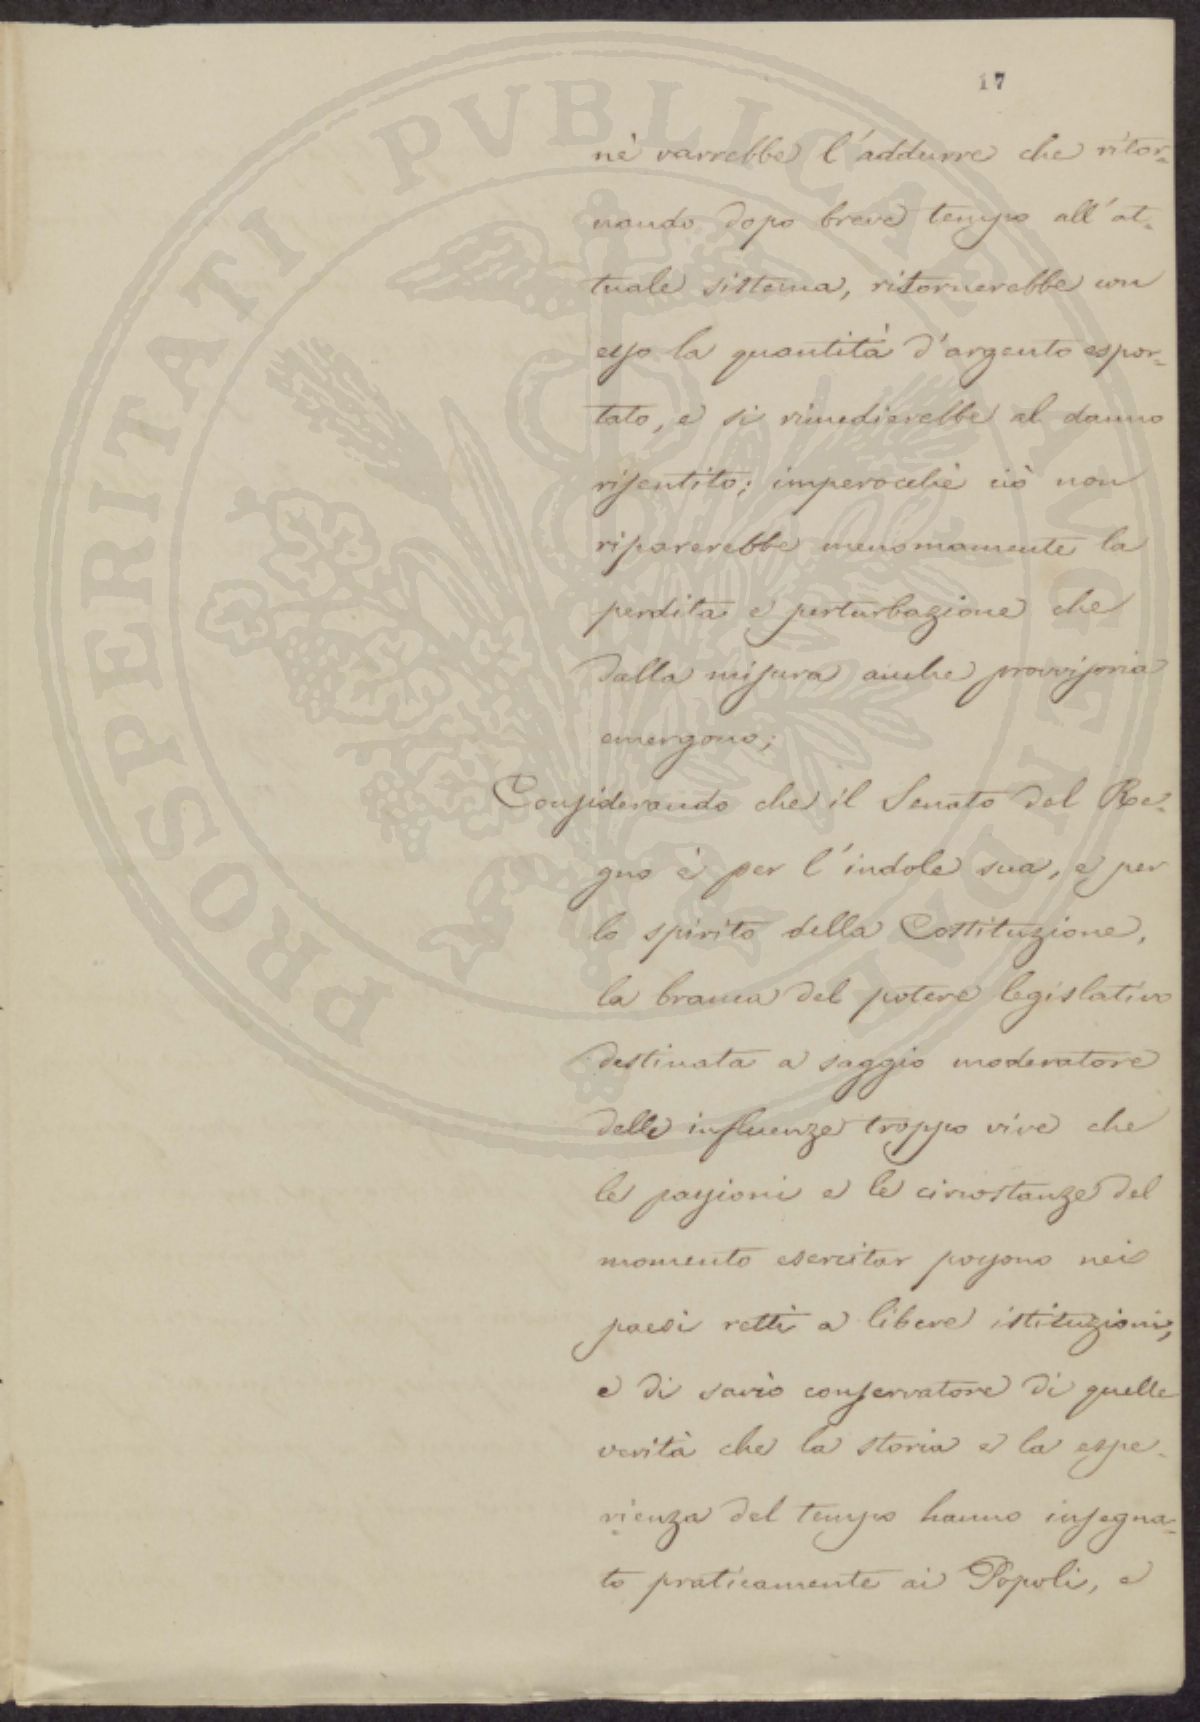 17
nè varrebbe l'addurre che ritor-
nando dopo breve tempo all'at-
tuale sistema, ritornerebbe con
esso la quantità d'argento espor-
tato, e si rimedierebbe al danno
risentito; imperocchè ciò non
riparerebbe menomamente la
perdita e perturbazione che
dalla misura anche provvisoria
emergono;
Considerando che il Senato del Re-
gno è per l'indole sua, e per
lo spirito della Costituzione,
la branca del potere legislativo
destinata a saggio moderatore
delle influenze troppo vive che
le passioni e le circostanze del
momento esercitar possono nei
paesi retti a libere istituzioni,
e di savio conservatore di quelle
verità che la storia e la espe-
rienza del tempo hanno insegna-
to praticamente ai Popoli, e
PROSPERITATI PVBLICAE AVGENDAE